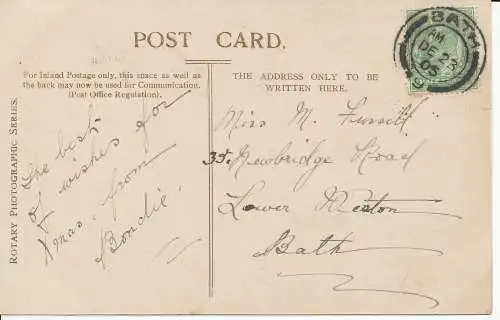 POST CARD.
For Inland Postage only, this space as well as
the back may now be used for Communication.
(Post Office Regulation).
THE ADDRESS ONLY TO BE
WRITTEN HERE.
BATH
AM
DE 23
ROTARY PHOTOGRAPHIC SERIES.
The best
of wishes for
Xmas, from
Bondie.
Miss M. Fussell
35. Newbridge Road
Lower Weston
Bath